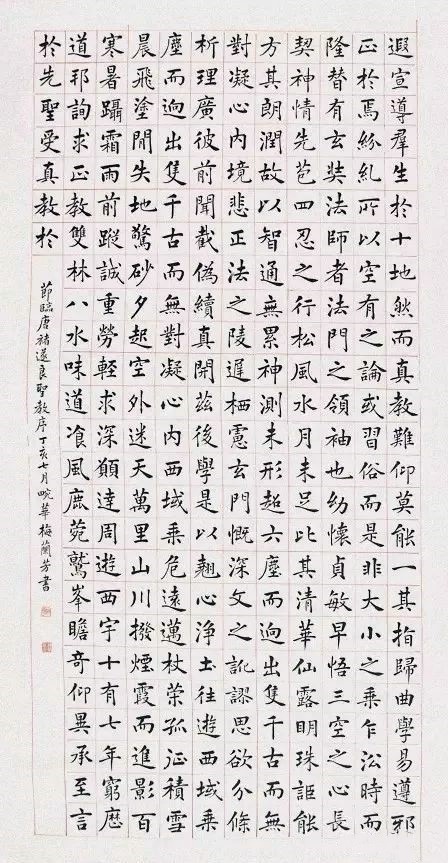 遐宣導羣生於十地然而真教難仰莫能一其指歸曲學易遵邪
正於焉紛糺所以空有之論或習俗而是非大小之乘乍沿時而
隆替有玄奘法師者法門之領袖也幼懷貞敏早悟三空之心長
契神情先苞四忍之行松風水月未足比其清華仙露明珠詎能
方其朗潤故以智通無累神測未形超六塵而迥出隻千古而無
對凝心内境悲正法之陵遲栖慮玄門慨深文之訛謬思欲分條
析理廣彼前聞截偽續真開茲後學是以翹心淨土往遊西域乘
塵而迥出隻千古而無對凝心内西域乘危遠邁杖策孤征積雪
晨飛塗閒失地驚砂夕起空外迷天萬里山川撥煙霞而進影百
寒暑躡霜雨前蹤誠重勞輕求深願達周遊西宇十有七年窮歷
道邦詢求正教雙林八水味道飡風鹿菀鷲峯瞻奇仰異承至言
於先聖受真教於
節臨唐褚遂良聖教序丁亥七月畹華梅蘭芳書